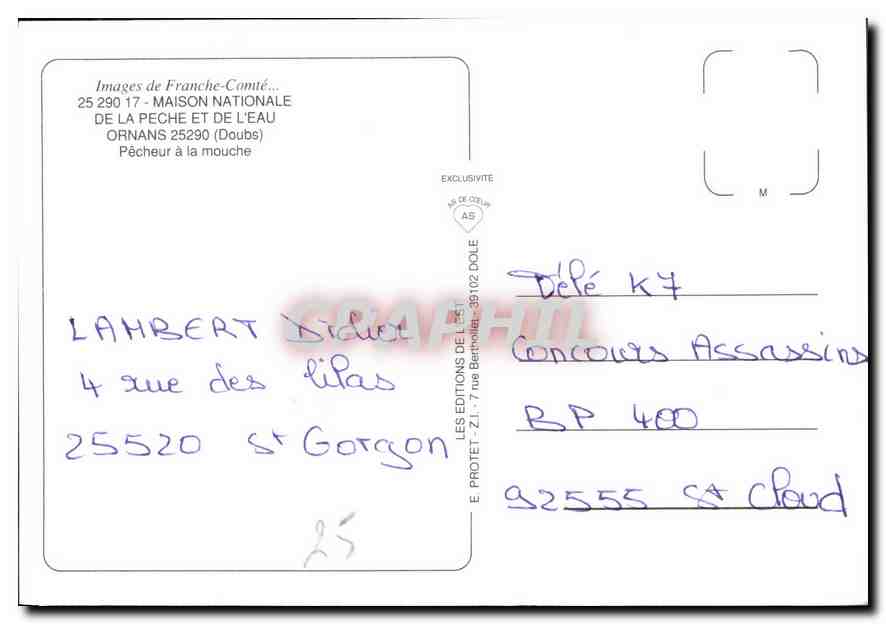 Images de Franche-Comté...
25 290 17 - MAISON NATIONALE
DE LA PECHE ET DE L'EAU
ORNANS 25290 (Doubs)
Pêcheur à la mouche
LAMBERT Didier
4 rue des lilas
25520 St Gorgon
25
EXCLUSIVITÉ
AS DE CŒUR
AS
LES EDITIONS DE L'EST
E. PROTET - Z.I. - 7 rue Berthollet - 39102 DOLE
M
Délé K7
Concours Assassins
BP 400
92555 St Cloud
GRAPHIL